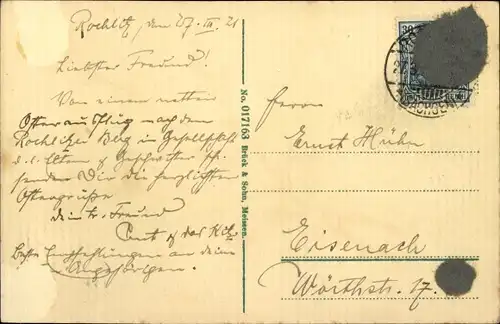 Rochlitz, den 27. III. 21
Liebster Freund!
Von einem netten
Osterausflug nach dem
Rochlitzer Berg in Gesellschaft
d. l. Eltern & Geschwister
senden Dir die herzlichsten
Ostergrüße
dein tr. Freund
Curt &
Beste Empfehlungen an deine
Angehörigen.
No. 017163 Brück & Sohn, Meissen.
Herrn
Ernst Hühn
Eisenach
Wörthstr. 17.